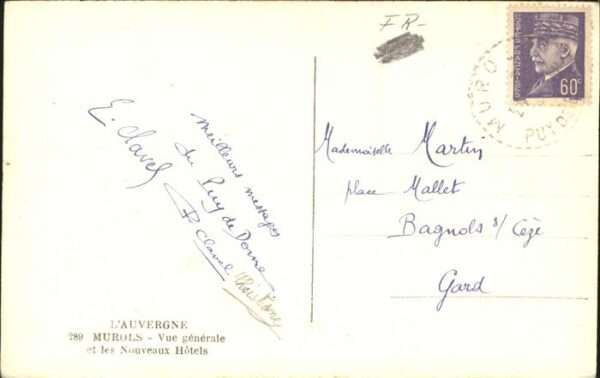 FR-
60c
MURO
PUY D
Meilleurs messages
du Puy de Dome
E. Clavel
P Clavel
Mademoiselle Martin
place Mallet
Bagnols s/ Cèze
Gard
L'AUVERGNE
289 MUROLS - Vue générale
et les Nouveaux Hôtels